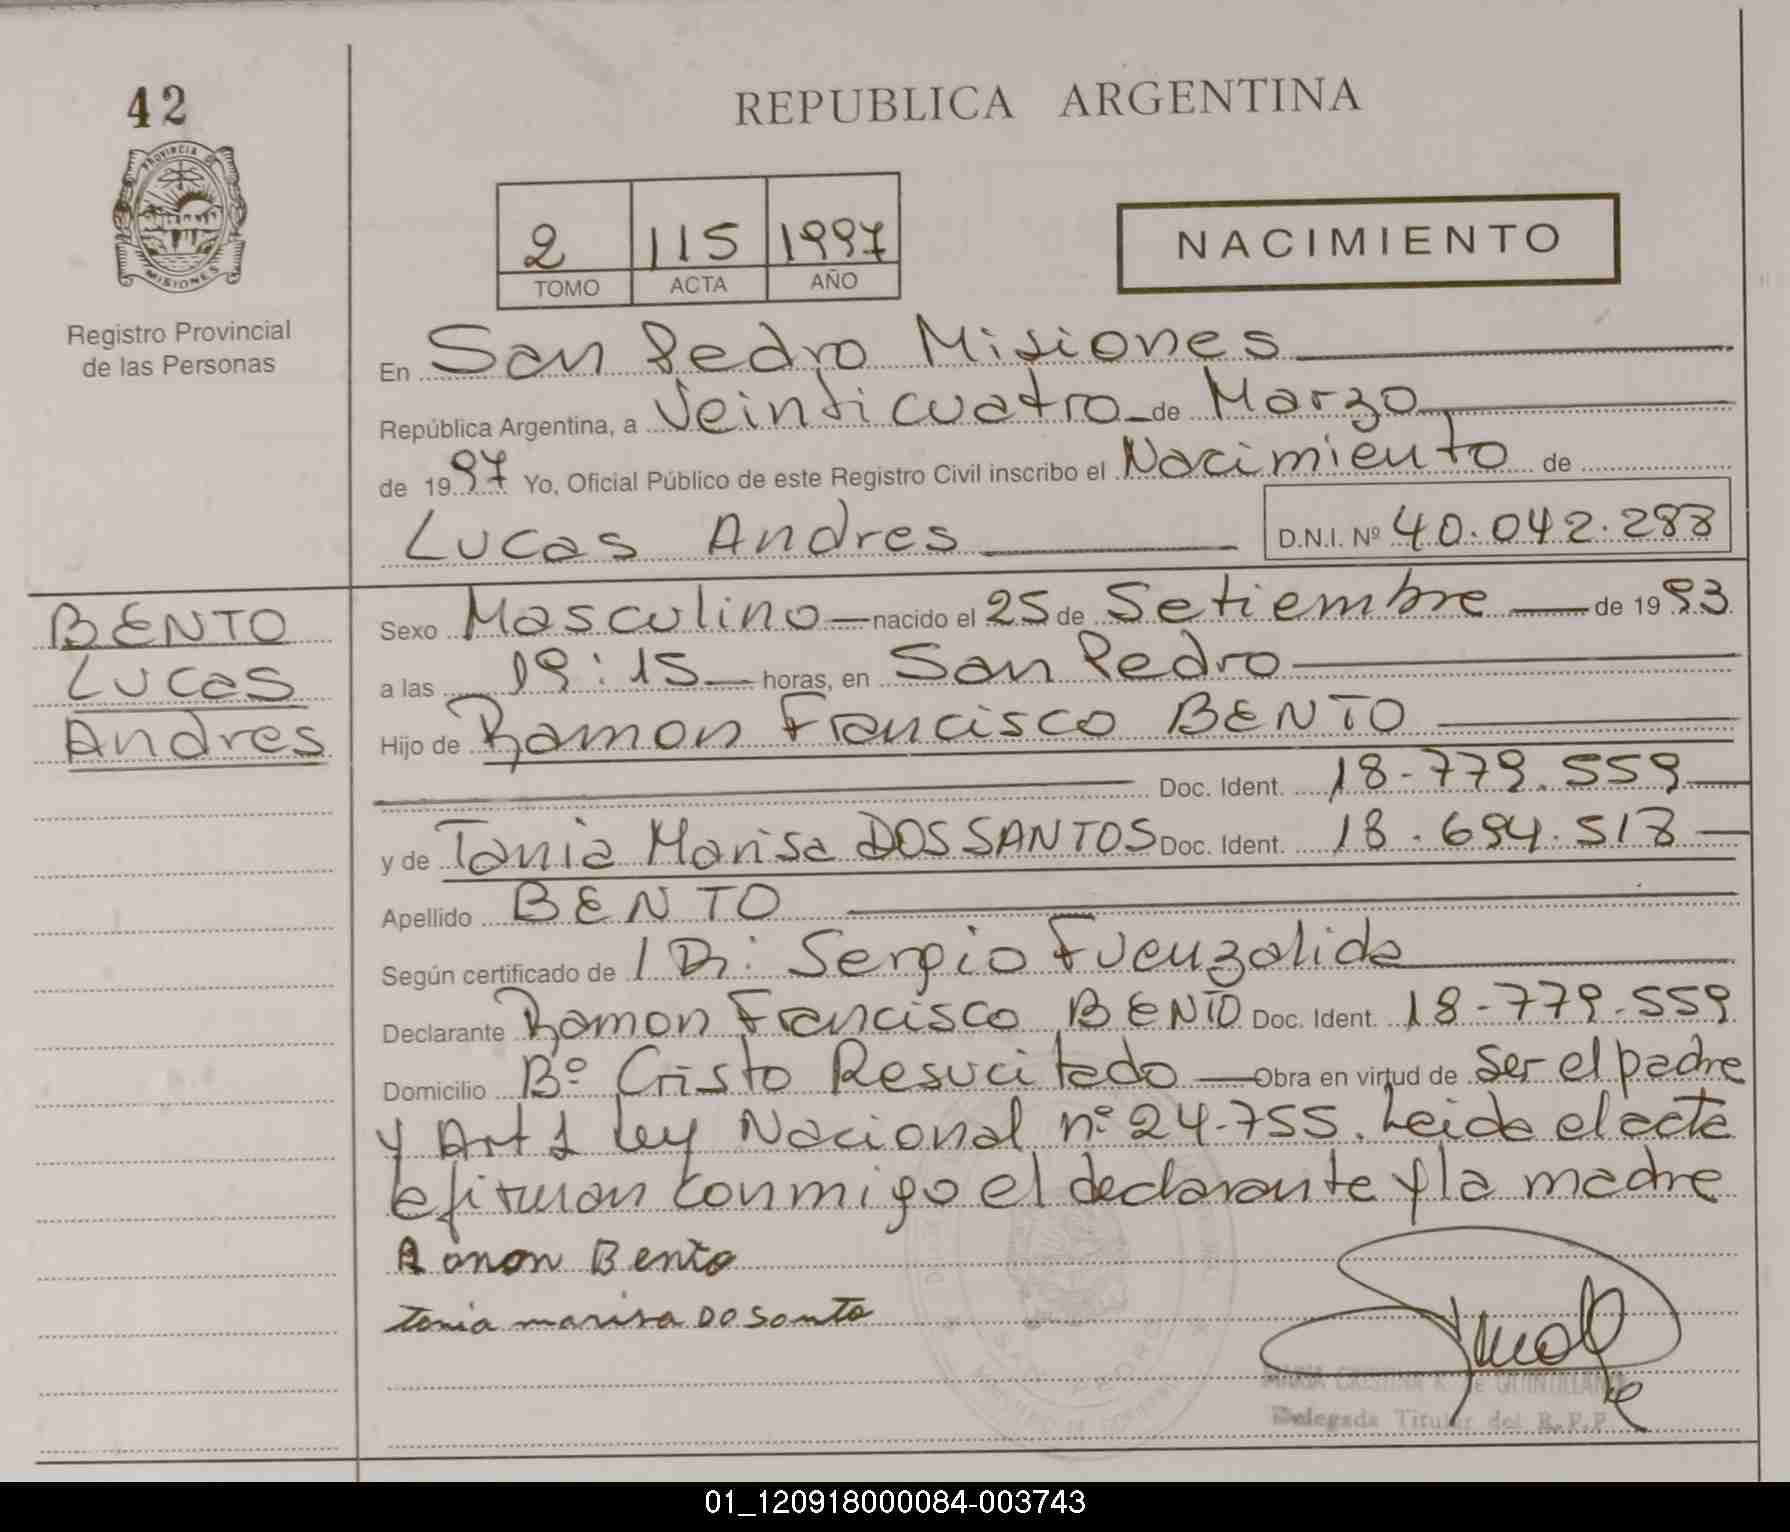 42
PROVINCIA DE
MISIONES
Registro Provincial
de las Personas
REPUBLICA ARGENTINA
2 115 1997
TOMO ACTA AÑO
NACIMIENTO
En San Pedro Misiones
República Argentina, a Veinticuatro de Marzo
de 1997 Yo, Oficial Público de este Registro Civil inscribo el Nacimiento de
Lucas Andres D.N.I. Nº 40.042.288
BENTO
Lucas
Andres
Sexo Masculino nacido el 25 de Setiembre de 1993
a las 19:15 horas, en San Pedro
Hijo de Ramon Francisco BENTO
Doc. Ident. 18-779.559
y de Tania Marisa DOS SANTOS Doc. Ident. 18.694.518
Apellido BENTO
Según certificado de / Dr: Sergio Fuenzalida
Declarante Ramon Francisco BENTO Doc. Ident. 18-779-559
Domicilio Bº Cristo Resucitado Obra en virtud de Ser el padre
y Art 1 Ley Nacional nº 24-755. Leida el acta
la firman conmigo el declarante y la madre
Ramon Bento
tania marisa DO Santo
MARIA CRISTINA R. DE
Delegada Titular del R.P.P.
SAN PEDRO
01_120918000084-003743